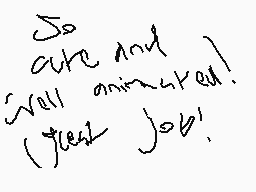 So
cute and
well animated!
Great job!